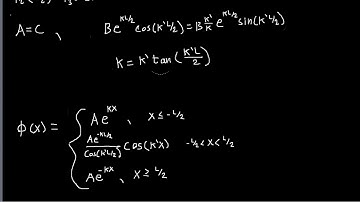 A=C , Be^{KL/2} cos(K'L/2) = B K'/K e^{KL/2} sin(K'L/2)
K = K' tan(K'L/2)
ϕ(x) = { Ae^{KX} , X ≤ -L/2
Ae^{-KL/2}/cos(K'L/2) cos(K'X) -L/2<X<L/2
Ae^{-KX} , X ≥ L/2